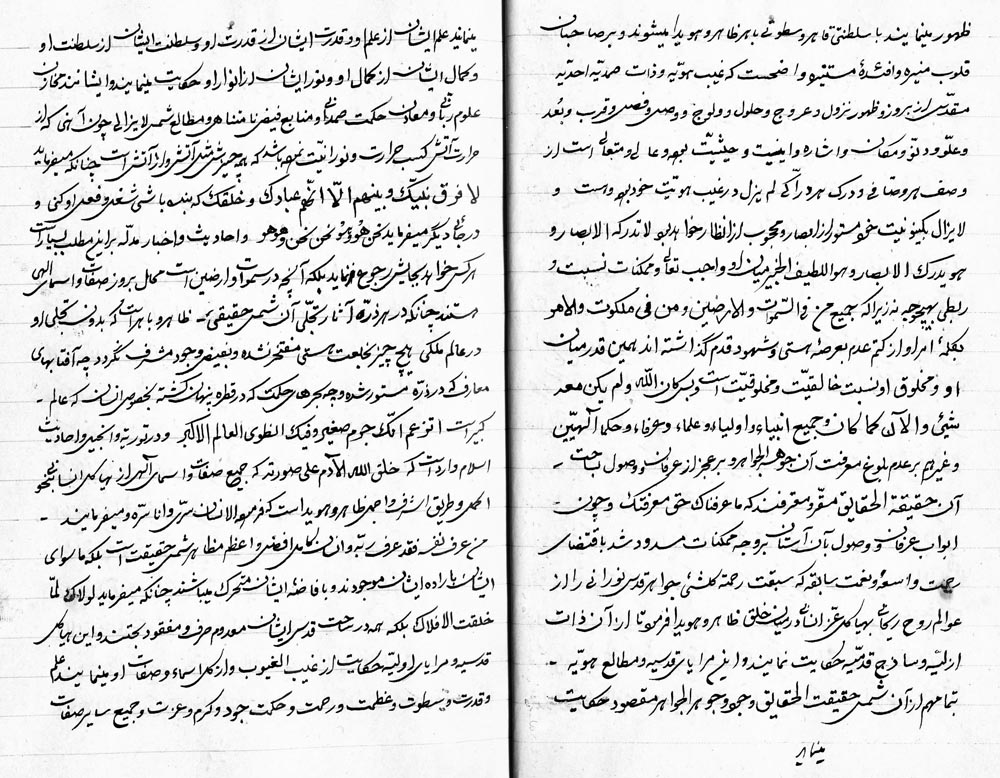 ظهور مینمایند با سلطنتی قاهر و سطوتی باهر ظاهر و هویدا میشوند و بر صاحبان
قلوب منیره و افئدهٔ مستنیره واضحست که غیب هویّه و ذات صمدیه احدیه
مقدّس از بروز و ظهور و نزول و عروج و حلول و ولوج و وصل و فصل و قرب و بُعد
و علوّ و دنوّ و مکان و اشاره و اینیت و حیثیّت بوده و عالی و متعالی است از
وصف هر وصافی و درک هر درّاکی لم یزل در غیب هویّت خود بوده است و
لایزال بکینونیت خود مستور از ابصار و محجوب از انظار خواهد بود لا تدرکه الابصار و
هو یدرک الابصار و هو اللطیف الخبیر میان او واجب تعالی و ممکنات نسبت و
ربطی بهیچوجه نه زیرا که جمیع من فی السموات و الارضین و من فی ملکوت و الامر
بکلمهٔ امر او از کتم عدم بعرصهٔ هستی و شهود قدم گذاشته‌اند همین قدر میان
او و مخلوق او نسبت خالقیّت و مخلوقیّت است و بس کان الله و لم یکن معه
شیئی و الآن کما کان و جمیع انبیاء و اولیاء و علماء و عرفاء و حکماء آلهیّین
و غیرهم بر عدم بلوغ معرفت آن جوهر الجواهر و بر عجز از عرفان و وصول بساحت
آن حقیقة الحقایق مقرّ و معترفند که ما عرفناک حق معرفتک و چون
ابواب عرفان و وصول بآن آستان بروجه ممکنات مسدود شد باقتضای
رحمت واسعه و نعمت سابقه که سبقت رحمته کلشئی جواهر قدسی نورانی را از
عوالم روح ریحانی بهیاکل عزّ انسانی در میان خلق ظاهر و هویدا فرمود تا از آن ذات
ازلیّه و ساذج قدمیّه حکایت نمایند و این مرایای قدسیه و مطالع هویّه
بتمامهم از آن شمس حقیقة الحقایق و وجود و جوهر الجواهر مقصود حکایت
مینمایند
مینمایند علم ایشان از علم او و قدرت ایشان از قدرت او و سلطنت ایشان از سلطنت او
و کمال ایشان از کمال او و نور ایشان از انوار او حکایت مینمایند و ایشانند مخازن
علوم ربّانی و معادن حکمت صمدانی و منابع فیض نامتناهی و مطالع شمس لایزالی چون آهنی که از
حرارت آتش کسب حرارت و نورانیّت نموده باشد که هر چیزش شد آتش و از آتش است چنانکه میفرماید
لا فرق بینک و بینهم الّا انّهم عبادک و خلقک که بنده باشی شغل و فعل او کنی و
در جائی دیگر میفرماید نحن هو و هو نحن و نحن نحن و هو هو و احادیث و اخبار مدلّه بر این مطلب بسیار است
هرکس خواهد بجایش رجوع فرماید بلکه آنچه در سموات و ارضین است محال بروز صفات و اسمای الهی
هستند چنانکه در هر ذرّه آثار تجلّی آن شمس حقیقی ظاهر و باهر است که بدون تجلّی او
در عالم ملکی هیچ چیز بخلعت هستی مفتخر نشده و بفیض وجود مشرف نگردد چه آفتابهای
معارف که در ذرّه مستور شده و چه بحرهای حکمت که در قطره پنهان گشته بخصوص انسان که عالم
کبیر است اتزعم انّک جرم صغیر و فیک انطوی العالم الاکبر و در توریة و انجیل و احادیث
اسلام وارد است که خلق الله الآدم علی صورته که جمیع صفات و اسمای الهی از هیاکل انسانی بنحو
اکمل و طریق اشرف و اجلی ظاهر و هویداست که فرموده الانسان سرّی و انا سرّه و میفرمایند
من عرف نفسه فقد عرف ربّه و انسان کامل افضل و اعظم مظاهر شمس حقیقت است بلکه ماسوای
ایشان باراده ایشان موجودند و بافاضهٔ ایشان متحرک میباشند چنانکه میفرماید لولاک لمّا
خلقت الافلاک بلکه همه در ساحت قدس ایشان معدوم صرف و مفقود بحتند و این هیاکل
قدسیه و مرایای اولیّه حکایت از غیب الغیوب و از کل اسماء و صفات او مینمایند از علم
و قدرت و سطوت و عظمت و رحمت و حکمت جود و کرم و عزت و جمیع سایر صفات